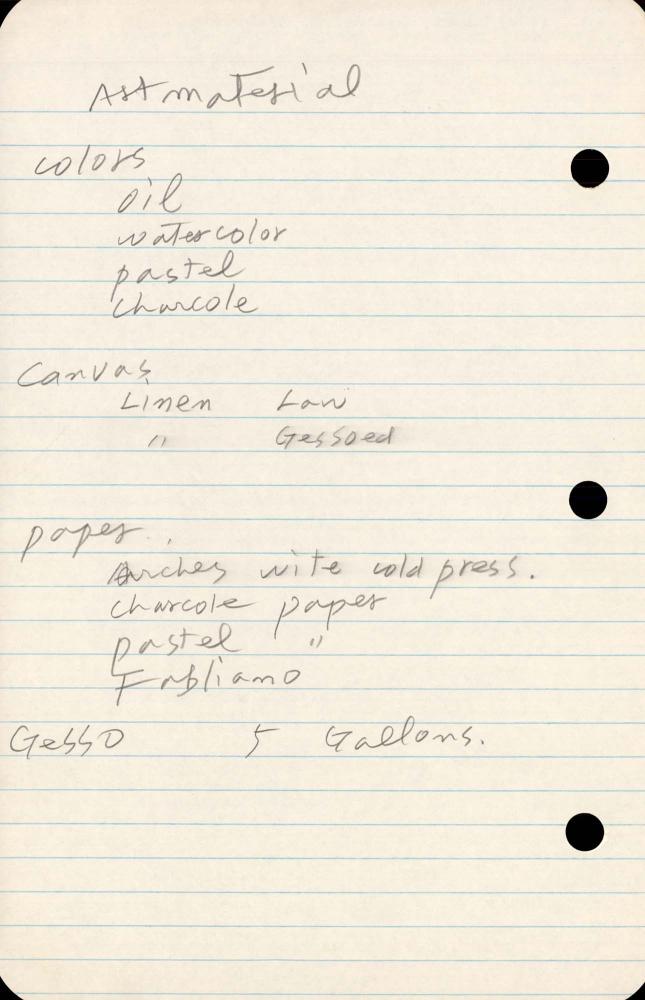 Art material
colors
oil
watercolor
pastel
charcole
Canvas
Linen Law
" Gessoed
paper.
Arches wite cold press.
charcole paper
pastel "
Fabliano
Gesso 5 Gallons.